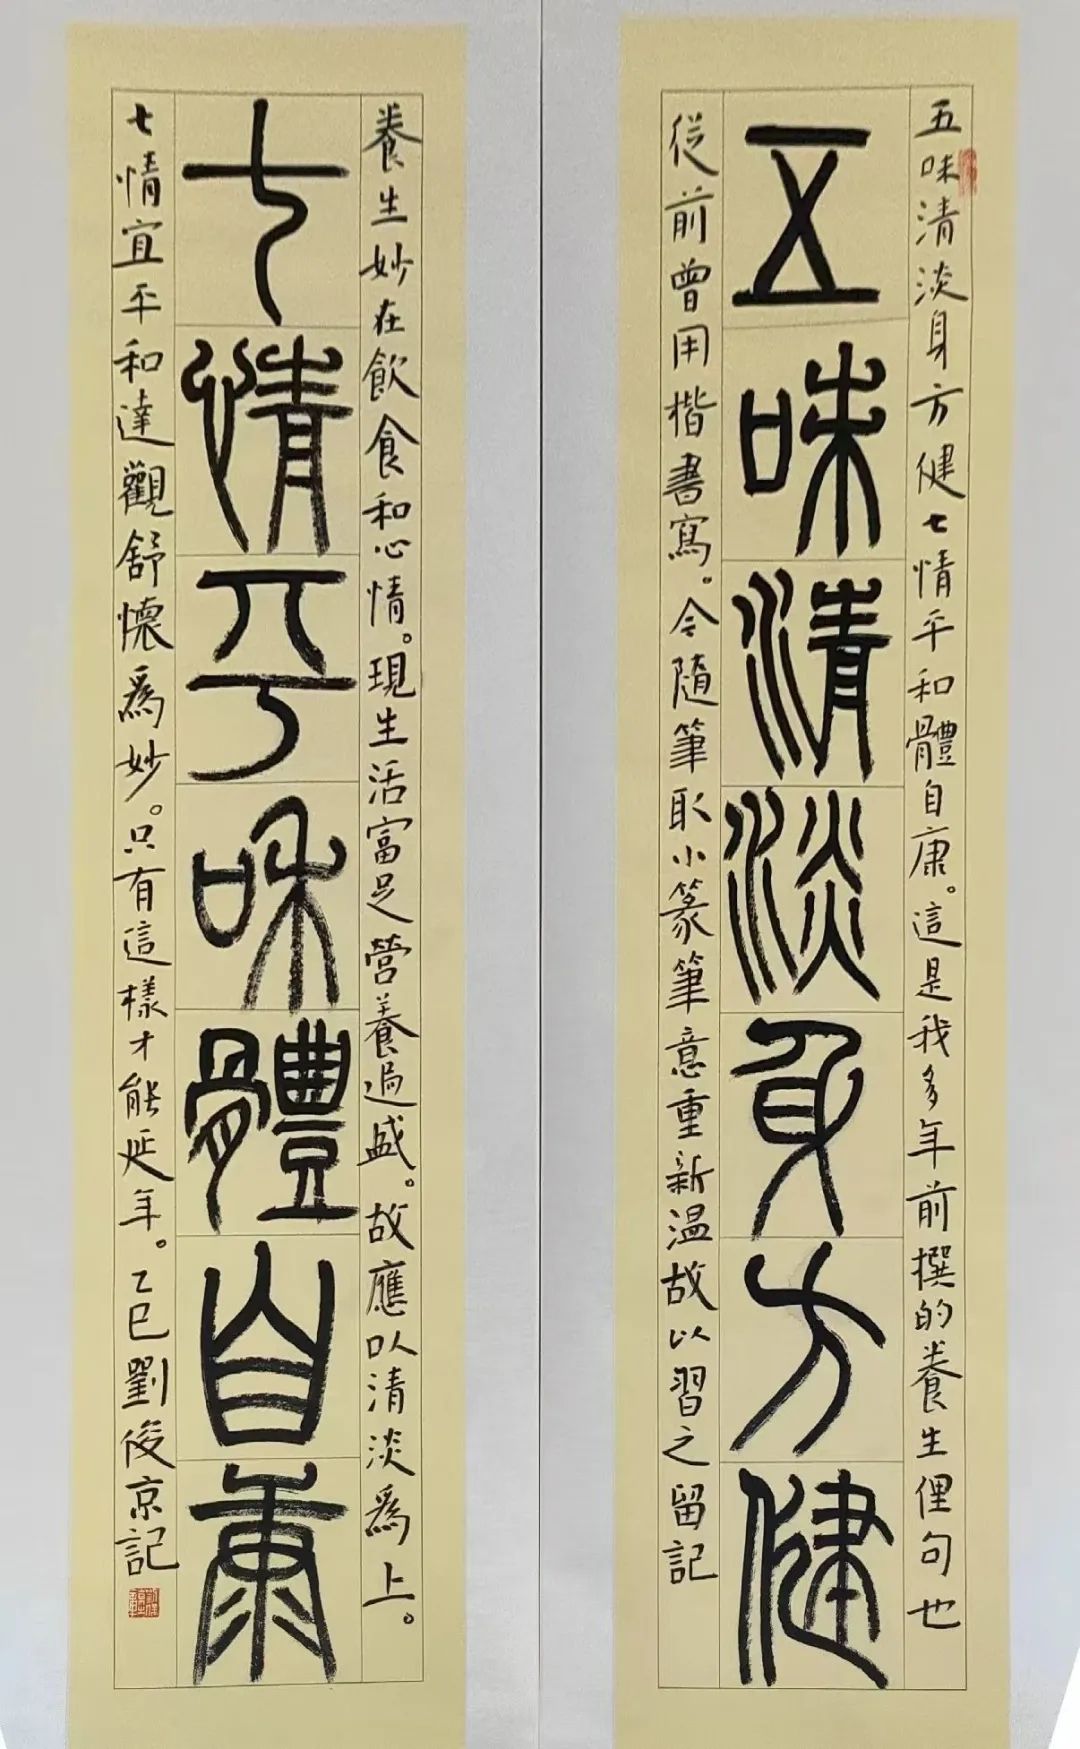 五味清淡身方健七情平和體自康。這是我多年前撰的養生俚句也
五味清淡身方健
從前曾用楷書寫。今隨筆取小篆筆意重新温故以習之留記
養生妙在飲食和心情。現生活富足營養過盛。故應以清淡爲上。
七情平和體自康
七情宜平和達觀舒懷爲妙。只有這樣才能延年。乙巳劉俊京記